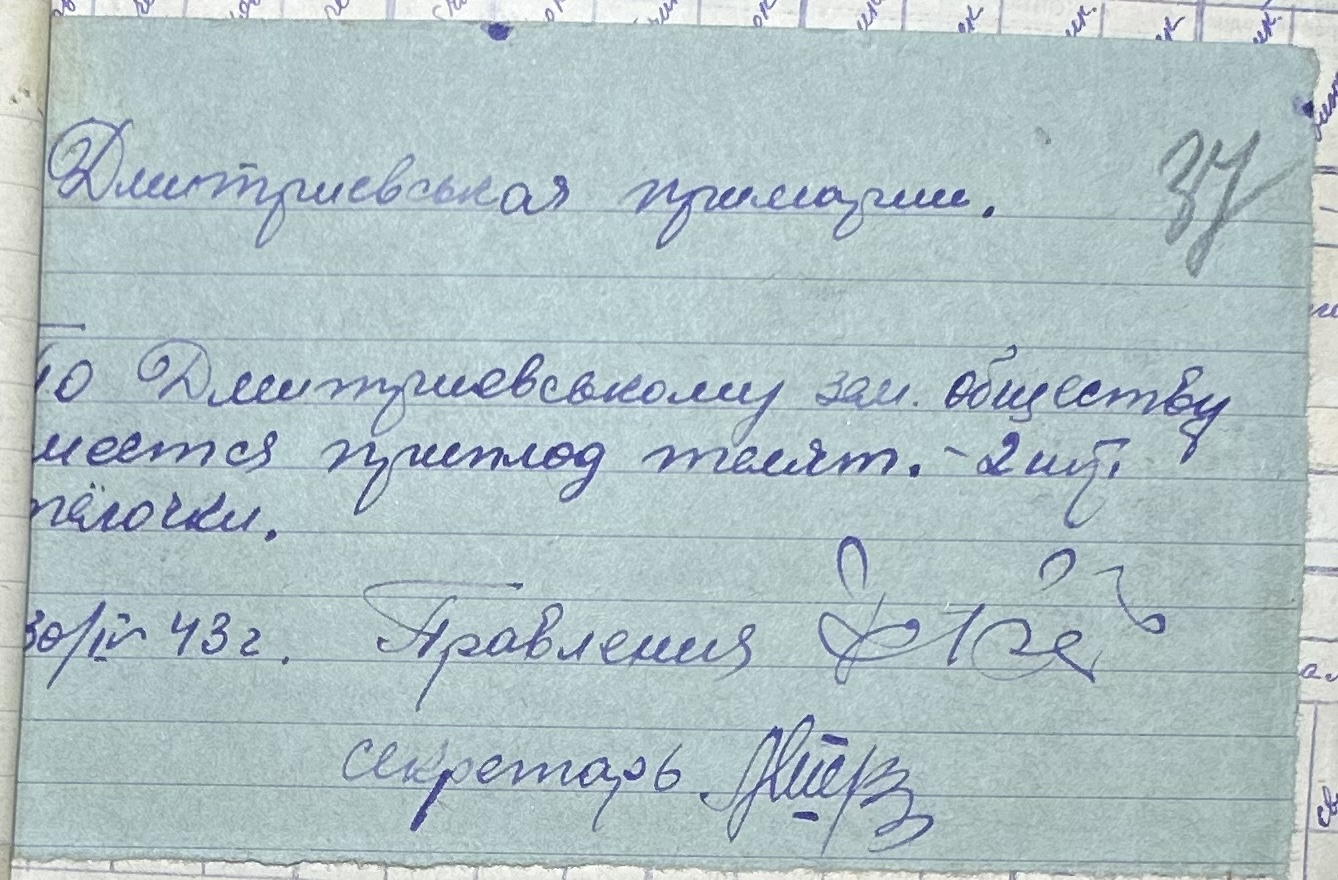 Дмитриевськая примарии.
37
По Дмитриевському зем. обществу
меется приплод телят. - 2 шт.
тёлочки.
30/IV 43 г. Правления
секретарь